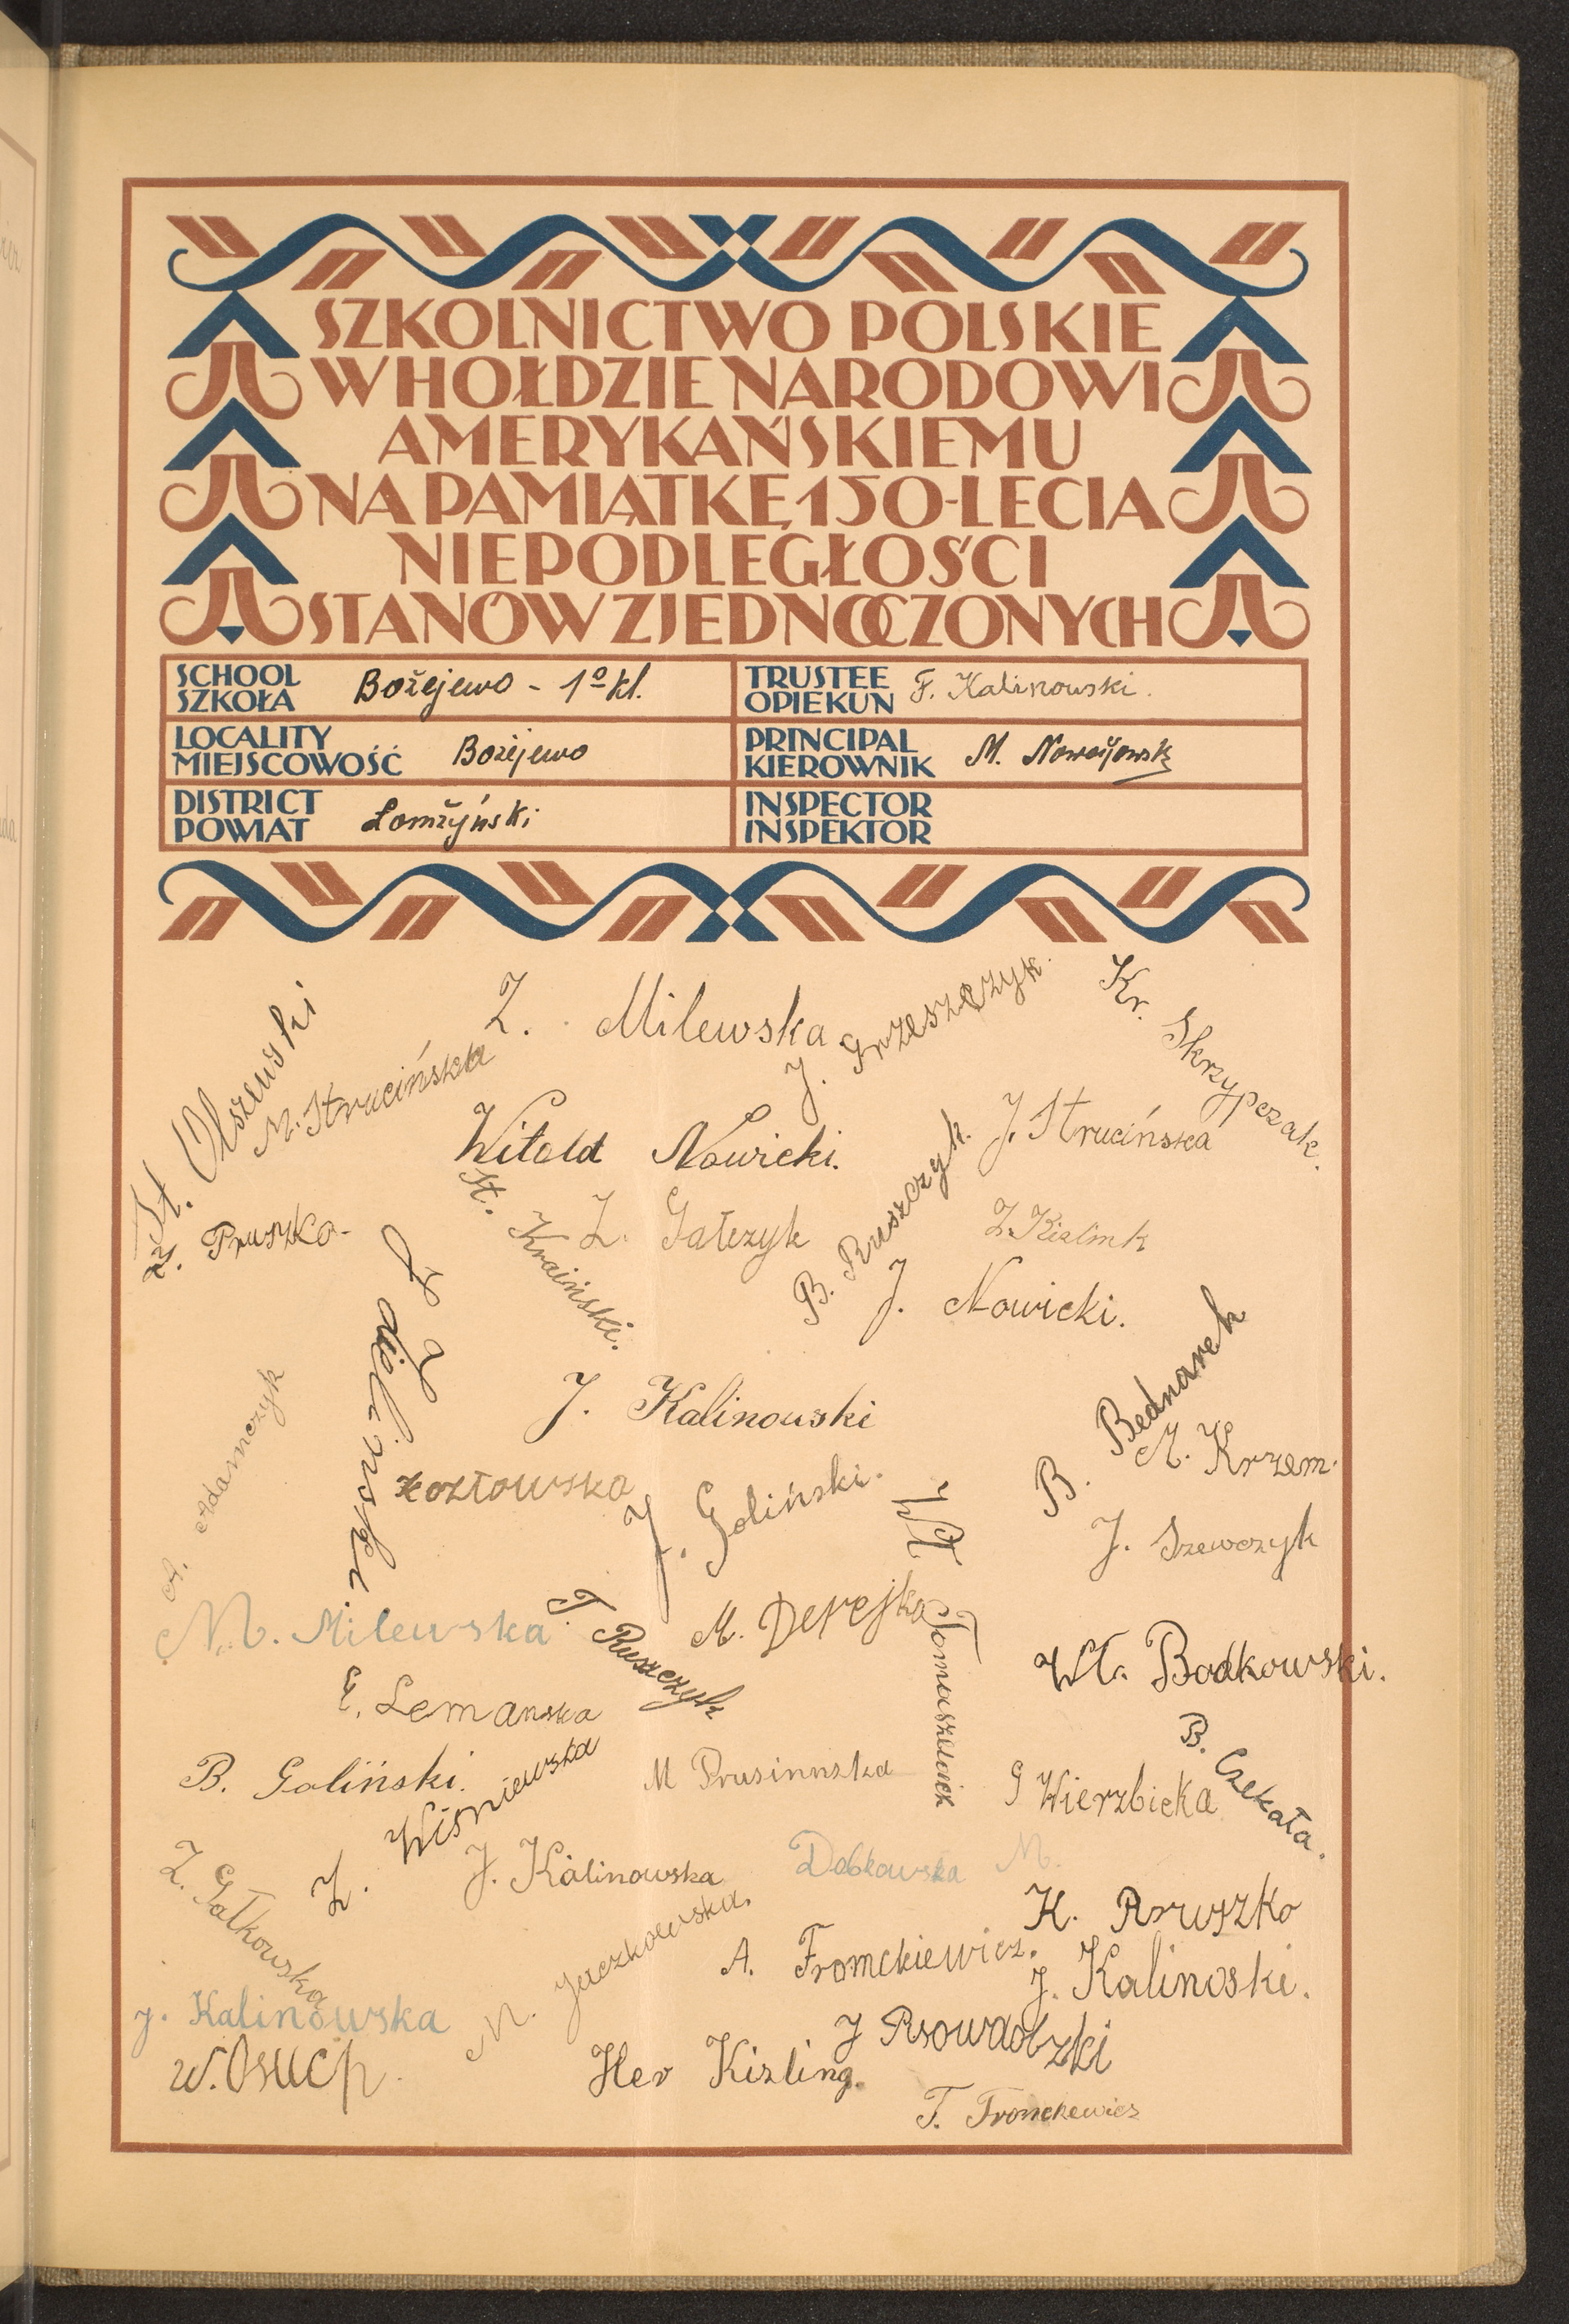 SZKOLNICTWO POLSKIE
W HOŁDZIE NARODOWI
AMERYKAŃSKIEMU
NA PAMIĄTKĘ 150-LECIA
NIEPODLEGŁOŚCI
STANÓW ZJEDNOCZONYCH
SCHOOL
SZKOŁA
Bożejewo - 1º kl.
TRUSTEE
OPIEKUN
F. Kalinowski.
LOCALITY
MIEJSCOWOŚĆ
Bożejewo
PRINCIPAL
KIEROWNIK
M.
DISTRICT
POWIAT
Łomżyński
INSPECTOR
INSPEKTOR
Z. Milewska
J. Grzeszczyk.
Kr. Skrzypczak.
St. Olszewski
M. Strucińska
Witold Nowicki.
J. Strucińska
B. Ruszczyk.
Pruszko
St. Kraiński.
Z. Gałczyk
J. Nowicki.
B. Bednarek
A. Adamczyk
J. Kalinowski
M. Krzem.
Kozłowska
J. Goliński.
J. Szewczyk
Wł. Tomaszewick
M. Milewska
T. Ruszczyk
M. Derejko
Wł. Bodkowski.
E. Lemanska
B. Goliński.
Z. Wiśniewska
M Prusinnska
G Wierzbicka
B. Czekała.
Z. Gałkowska
J. Kalinowska
Dobkowska M.
K. Pruszko
M. Jaczkowska.
A. Fromckiewicz.
J. Kalinoski.
J. Kalinowska
W. Osuch.
Her Kizling.
T. Fronckewicz